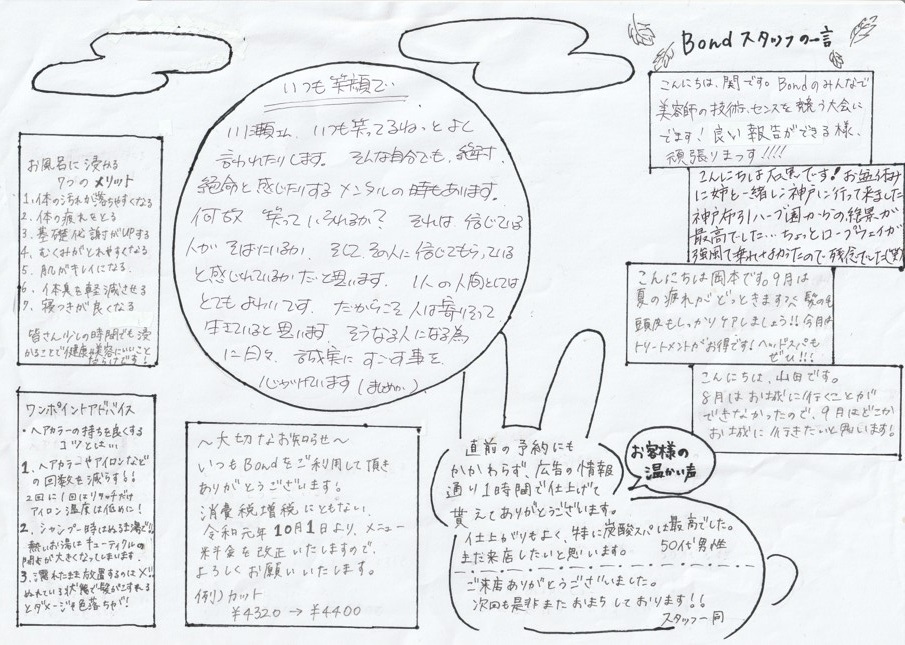 いつも笑顔で
川瀬
いつも笑ってるねっとよく
言われたりします。そんな自分でも、絶対
絶命と感じたりするメンタルの時もあります。
何故 笑っていられるか? それは信じている
人がそばにいるか、そしてその人に信じてもらっている
と感じれているかだと思います。1人の人間としては
とてもよわいです。だからこそ人は寄りそって
生きていると思います そうなる人になる為
に日々、誠実にすごす事を
心がけています(まじめか)
お風呂に浸みる
7つのメリット
1、体の汚れが落ちやすくなる
2、体の疲れをとる
3、基礎化謝がUPする
4、むくみがとれやすくなる
5、肌がキレイになる
6、体臭を軽減させる
7、寝つきが良くなる
皆さん少しの時間でも浸
かることで健康や美容にいいこと
ワンポイントアドバイス
・ヘアカラーの持ちを良くする
コツとは…
1、ヘアカラーやアイロンなど
の回数を減らす!!
2回に1回はリタッチだけ
アイロン温度は低めに!
2、シャンプー時はぬるま湯で!!
熱いお湯はキューティクルの
開きが大きくなってしまいます
3、濡れたまま放置するのは×!!
ぬれている状態で髪がこすれる
とダメージや色落ちが!
~大切なお知らせ~
いつもBondをご利用して頂き
ありがとうございます!
消費税増税にともない、
令和元年10月1日より、メニュー
料金を改正いたしますので、
よろしくお願いいたします。
例)カット
¥4320→¥4400
Bondスタッフの一言
こんにちは、関です。Bondのみんなで
美容師の技術、センスを競う大会に
でます!良い報告ができる様、
頑張りまっす!!!!
こんにちは大黒です!お盆休み
に姉と一緒に神戸に行って来ました
神戸布引ハーブ園からの絶景が
最高でした…ちょっとロープウェイが
強風で乗れなかったので残念でした
こんにちは岡本です。9月は
夏の疲れがどっときます 髪の毛
頭皮もしっかりケアしましょう!!今月は
トリートメントがお得です!ヘッドスパも
ぜひ!!!
こんにちは、山田です。
8月はお城に行くことが
できなかったので、9月はどこか
お城に行きたいと思います!
お客様の
温かい声
直前の予約にも
かかわらず、広告の情報
通り1時間で仕上げて
貰えてありがとうございます。
仕上がりもよく、特に炭酸スパは最高でした。
また来店したいと思います。 50代男性
ご来店ありがとうございました。
次回も是非またおまちしております!!
スタッフ一同